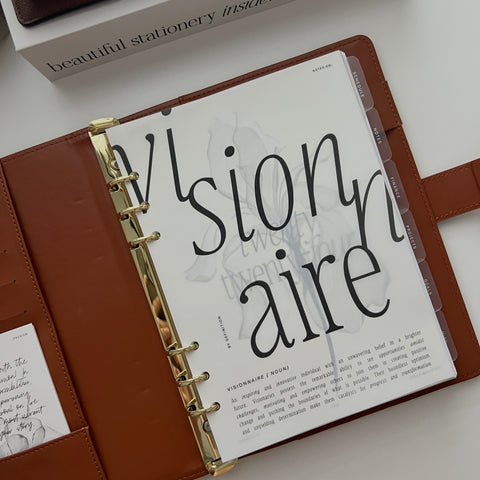 beautiful stationery inside
vi
sion
n
aire
twenty
twenty four
BY DEFINITION
VISIONNAIRE ( NOUN )
An inspiring and innovative individual with an unwavering belief in a brighter
future. Visionaries possess the remarkable ability to see opportunities amidst
challenges, motivating and empowering others to join them in creating positive
change and pushing the boundaries of what is possible. Their boundless optimism
and unyielding determination make them catalysts for progress and transformation.
SCHEDULE
NOTES
FINANCE
PROJECTS
GOALS
with the
your story.